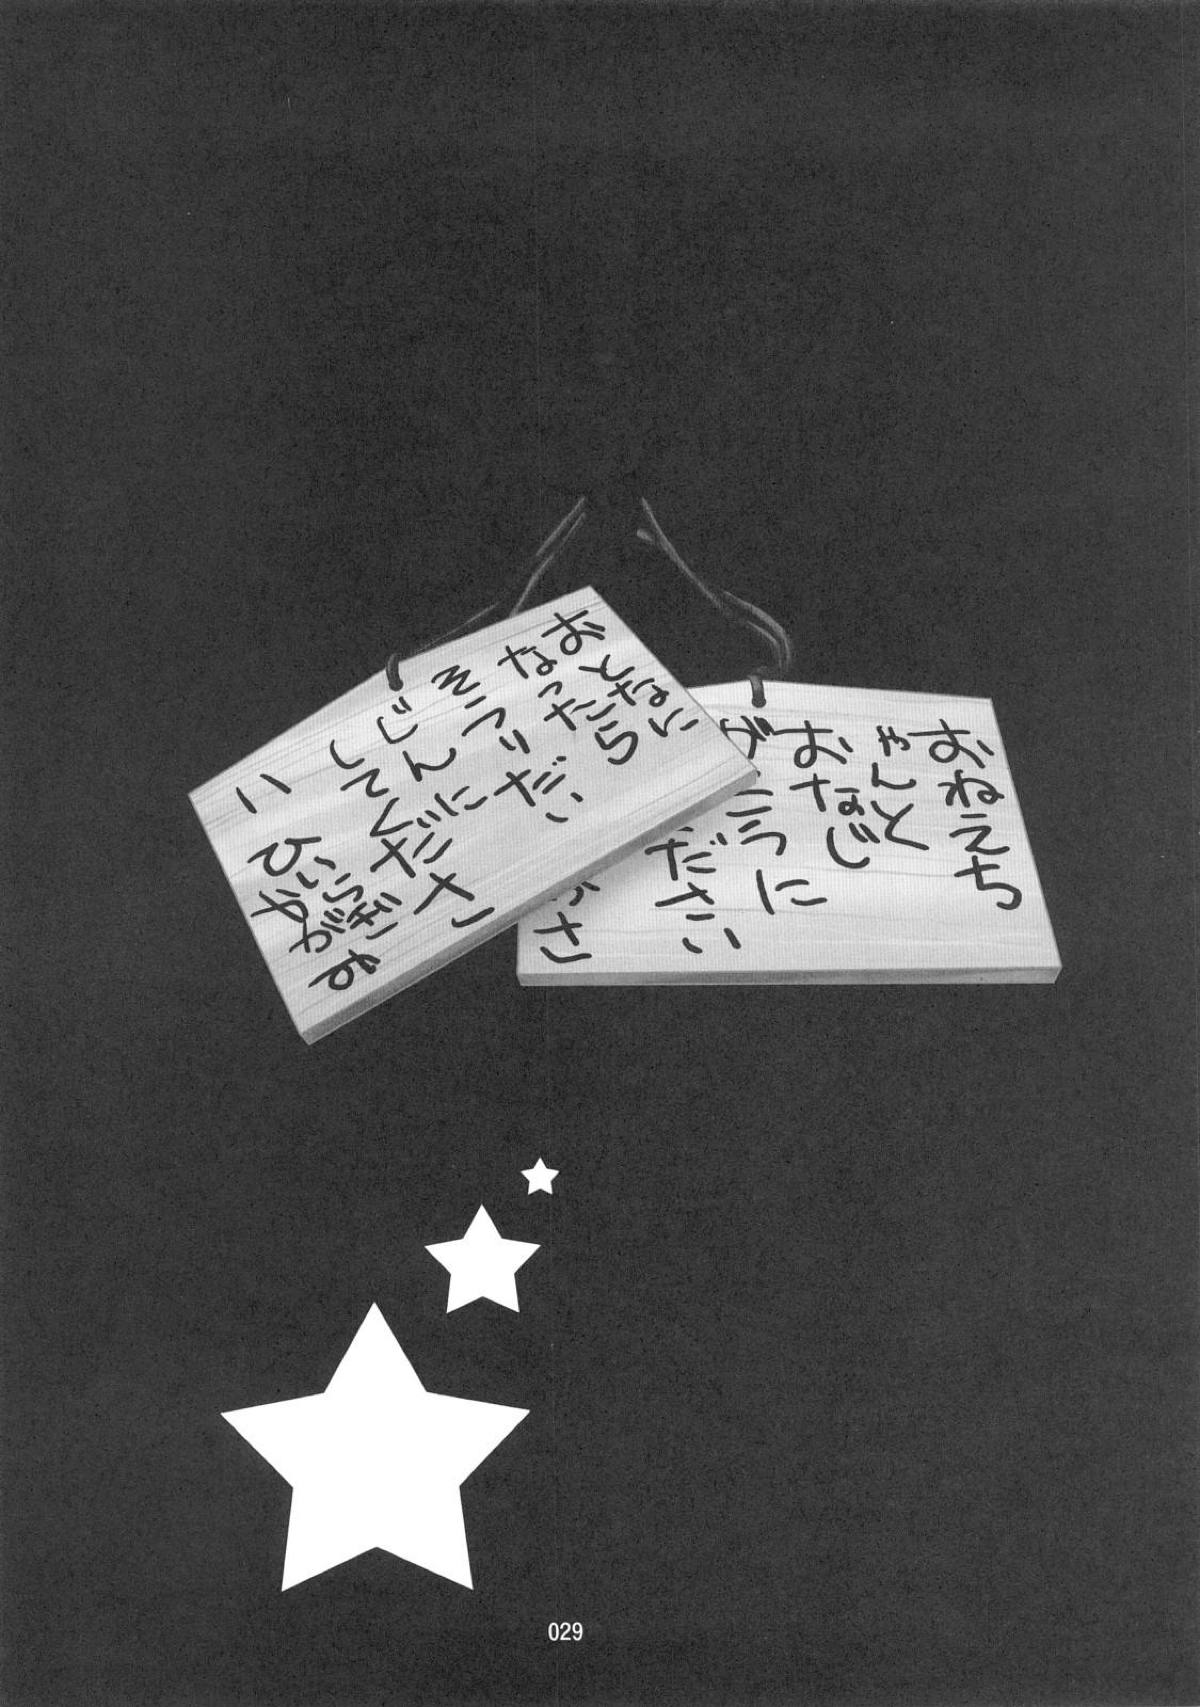 おねえち
ゃんと
おなじ
が こうに
ださい
さ
おとなに
なったら
そうりだい
じんに
してくださ
い
ひいらぎ
かがみ
029